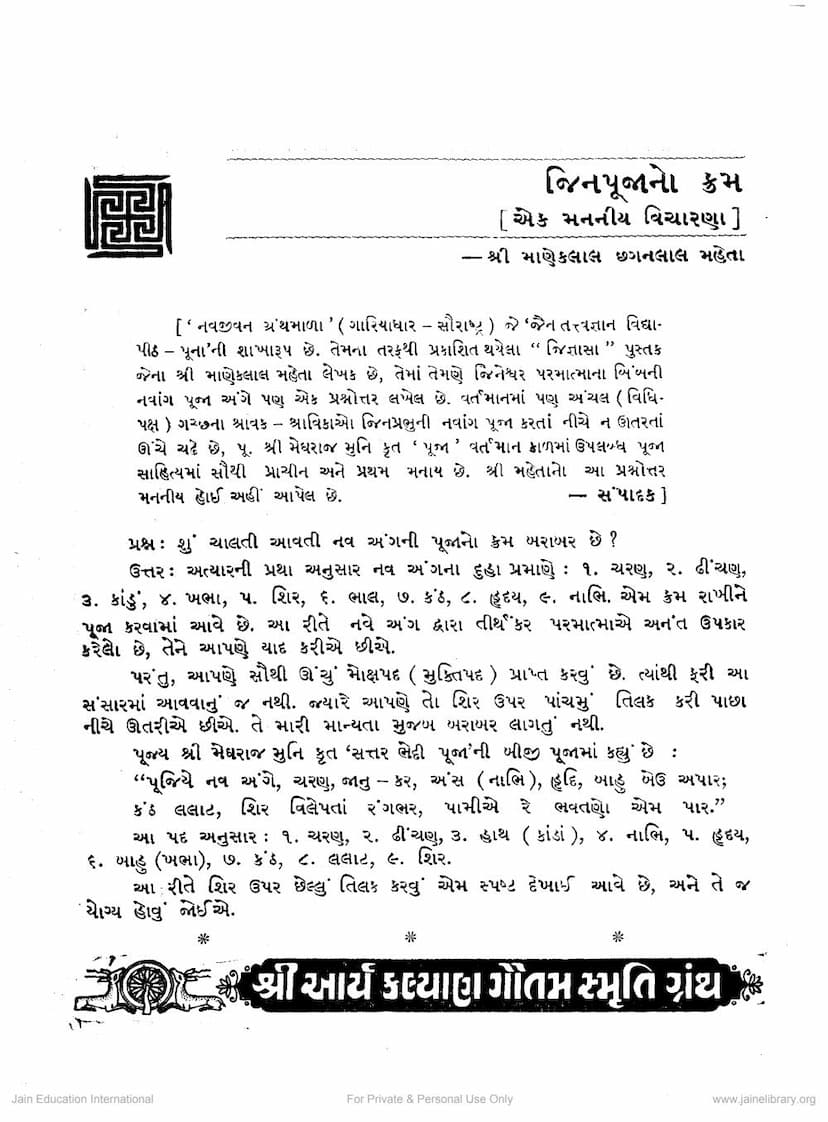 જિનપૂજાનો ક્રમ
[ એક મનનીય વિચારણા ]
— શ્રી માણેકલાલ છગનલાલ મહેતા
[ ‘ નવજીવન ગ્રંથમાળા ’ ( ગારિયાધાર – સૌરાષ્ટ્ર ) જે ‘જૈન તત્ત્વજ્ઞાન વિદ્યા-
પીઠ – પૂના’ની શાખારૂપ છે. તેમના તરફથી પ્રકાશિત થયેલા “ જિજ્ઞાસા ” પુસ્તક
જેના શ્રી માણેકલાલ મહેતા લેખક છે, તેમાં તેમણે જિનેશ્વર પરમાત્માના બિંબની
નવાંગ પૂજા અંગે પણ એક પ્રશ્નોત્તર લખેલ છે. વર્તમાનમાં પણ અંચલ ( વિધિ-
પક્ષ ) ગચ્છના શ્રાવક – શ્રાવિકાઓ જિનપ્રભુની નવાંગ પૂજા કરતાં નીચે ન ઊતરતાં
ઊંચે ચઢે છે, પૂ. શ્રી મેઘરાજ મુનિ કૃત ‘ પૂજા ’ વર્તમાન કાળમાં ઉપલબ્ધ પૂજા
સાહિત્યમાં સૌથી પ્રાચીન અને પ્રથમ મનાય છે. શ્રી મહેતાનો આ પ્રશ્નોત્તર
મનનીય હોઈ અહીં આપેલ છે. — સંપાદક ]
પ્રશ્ન : શું ચાલતી આવતી નવ અંગની પૂજાનો ક્રમ બરાબર છે ?
ઉત્તર : અત્યારની પ્રથા અનુસાર નવ અંગના દુહા પ્રમાણે : ૧. ચરણ, ૨. ઢીંચણ,
૩. કાંડું, ૪. ખભા, ૫. શિર, ૬. ભાલ, ૭. કંઠ, ૮. હૃદય, ૯. નાભિ. એમ ક્રમ રાખીને
પૂજા કરવામાં આવે છે. આ રીતે નવે અંગ દ્વારા તીર્થંકર પરમાત્માએ અનંત ઉપકાર
કરેલો છે, તેને આપણે યાદ કરીએ છીએ.
પરંતુ, આપણે સૌથી ઊંચું મોક્ષપદ ( મુક્તિપદ ) પ્રાપ્ત કરવું છે. ત્યાંથી ફરી આ
સંસારમાં આવવાનું જ નથી. જ્યારે આપણે તો શિર ઉપર પાંચમું તિલક કરી પાછા
નીચે ઊતરીએ છીએ. તે મારી માન્યતા મુજબ બરાબર લાગતું નથી.
પૂજ્ય શ્રી મેઘરાજ મુનિ કૃત ‘સત્તર ભેદી પૂજા’ની બીજી પૂજામાં કહ્યું છે :
“પૂજિયે નવ અંગે, ચરણ, જાનુ – કર, અંસ (નાભિ), હૃદિ, બાહુ બેઉ અપાર;
કંઠ લલાટ, શિર વિલેપતાં રંગભર, પામીએ રે ભવતણો એમ પાર.”
આ પદ અનુસાર : ૧. ચરણ, ૨. ઢીંચણ, ૩. હાથ ( કાંડાં ), ૪. નાભિ, ૫. હૃદય,
૬. બાહુ (ખભા), ૭. કંઠ, ૮. લલાટ, ૯. શિર.
આ રીતે શિર ઉપર છેલ્લું તિલક કરવું એમ સ્પષ્ટ દેખાઈ આવે છે, અને તે જ
યોગ્ય હોવું જોઈએ.
* * *
શ્રી આર્ય કલ્યાણ ગૌતમ સ્મૃતિ ગ્રંથ
Jain Education International For Private & Personal Use Only www.jainelibrary.org